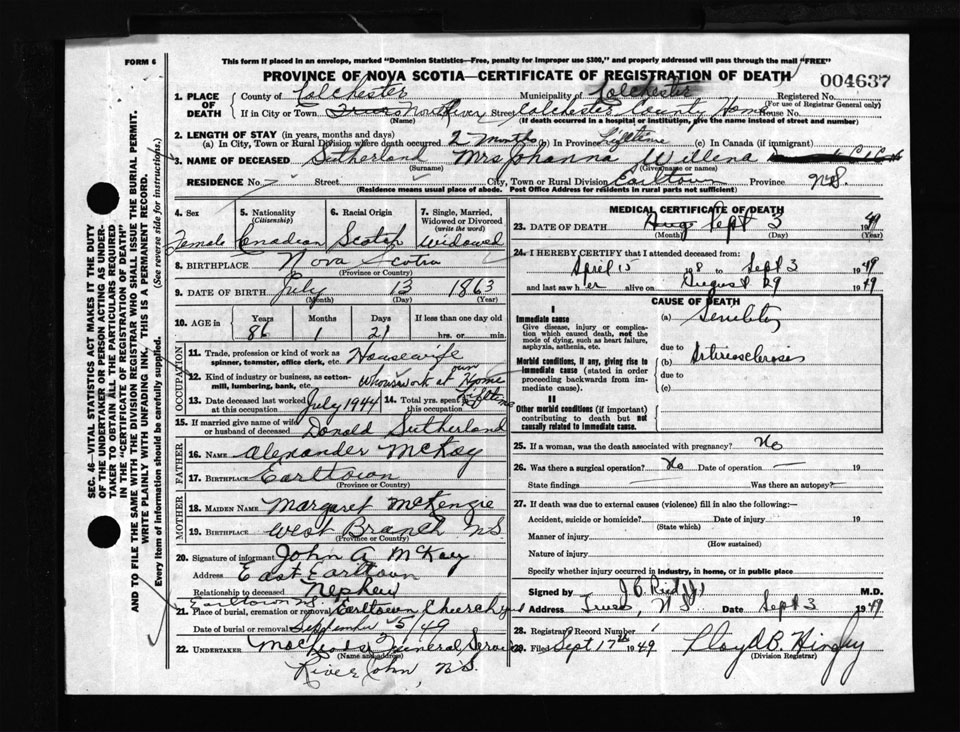 FORM 6
This form if placed in an envelope, marked "Dominion Statistics—Free, penalty for improper use $300," and properly addressed will pass through the mail "FREE"
PROVINCE OF NOVA SCOTIA—CERTIFICATE OF REGISTRATION OF DEATH
004637
1. PLACE OF DEATH
County of Colchester Municipality of Colchester Registered No.
(For use of Registrar General only)
If in City or Town North River Street Colchester County Home House No.
(Name) (If death occurred in a hospital or institution, give the name instead of street and number)
2. LENGTH OF STAY (in years, months and days)
(a) In City, Town or Rural Division where death occurred 2 months (b) In Province lifetime (c) In Canada (if immigrant)
3. NAME OF DECEASED Sutherland Mrs Johanna Willena
(Surname) (Given name or names)
RESIDENCE No. Street City, Town or Rural Division Earltown Province N.S.
(Residence means usual place of abode. Post Office Address for residents in rural parts not sufficient)
4. Sex
Female
5. Nationality
(Citizenship)
Canadian
6. Racial Origin
Scotch
7. Single, Married, Widowed or Divorced
(write the word)
Widowed
8. BIRTHPLACE Nova Scotia
(Province or Country)
9. DATE OF BIRTH July 13 1863
(Month) (Day) (Year)
10. AGE in Years Months Days If less than one day old
86 1 21 hrs. or min.
OCCUPATION
11. Trade, profession or kind of work as spinner, teamster, office clerk, etc. Housewife
12. Kind of industry or business, as cotton-mill, lumbering, bank, etc. housework at own Home
13. Date deceased last worked at this occupation July 1944 14. Total yrs. spent in this occupation lifetime
15. If married give name of wife or husband of deceased Donald Sutherland
FATHER
16. Name Alexander McKay
17. Birthplace Earltown
(Province or Country)
MOTHER
18. Maiden Name Margaret McKenzie
19. Birthplace West Branch N.S.
(Province or Country)
20. Signature of informant John A McKay
Address East Earltown
Relationship to deceased Nephew
Earltown N.S.
21. Place of burial, cremation or removal Earltown Church yard
Date of burial or removal September 5/49
22. UNDERTAKER Funeral Service
(Name and address)
River John, N.S.
MEDICAL CERTIFICATE OF DEATH
23. DATE OF DEATH Aug Sept 3 1949
(Month) (Day) (Year)
24. I HEREBY CERTIFY that I attended deceased from:
April 15 to Sept 3 1949
and last saw her alive on August 29 1949
CAUSE OF DEATH
I
Immediate cause
Give disease, injury or complication which caused death, not the mode of dying, such as heart failure, asphyxia, asthenia, etc.
(a) Senility
due to
Morbid conditions, if any, giving rise to immediate cause (stated in order proceeding backwards from immediate cause).
(b) Arteriosclerosis
due to
(c)
II
Other morbid conditions (if important) contributing to death but not causally related to immediate cause.
25. If a woman, was the death associated with pregnancy? No
26. Was there a surgical operation? No Date of operation — 19
State findings Was there an autopsy? —
27. If death was due to external causes (violence) fill in also the following:—
Accident, suicide or homicide? Date of injury 19
(State which)
Manner of injury
(How sustained)
Nature of injury
Specify whether injury occurred in industry, in home, or in public place
Signed by J. C. Reid M.D.
Address Truro, N S Date Sept 3 1949
28. Registrar's Record Number
29. Filed Sept 17th 1949 Lloyd B.
(Division Registrar)
SEC. 46—VITAL STATISTICS ACT MAKES IT THE DUTY OF THE UNDERTAKER OR PERSON ACTING AS UNDERTAKER TO OBTAIN ALL THE PARTICULARS REQUIRED IN THE "CERTIFICATE OF REGISTRATION OF DEATH" AND TO FILE THE SAME WITH THE DIVISION REGISTRAR WHO SHALL ISSUE THE BURIAL PERMIT.
WRITE PLAINLY WITH UNFADING INK, THIS IS A PERMANENT RECORD.
Every item of information should be carefully supplied. (See reverse side for instructions.)